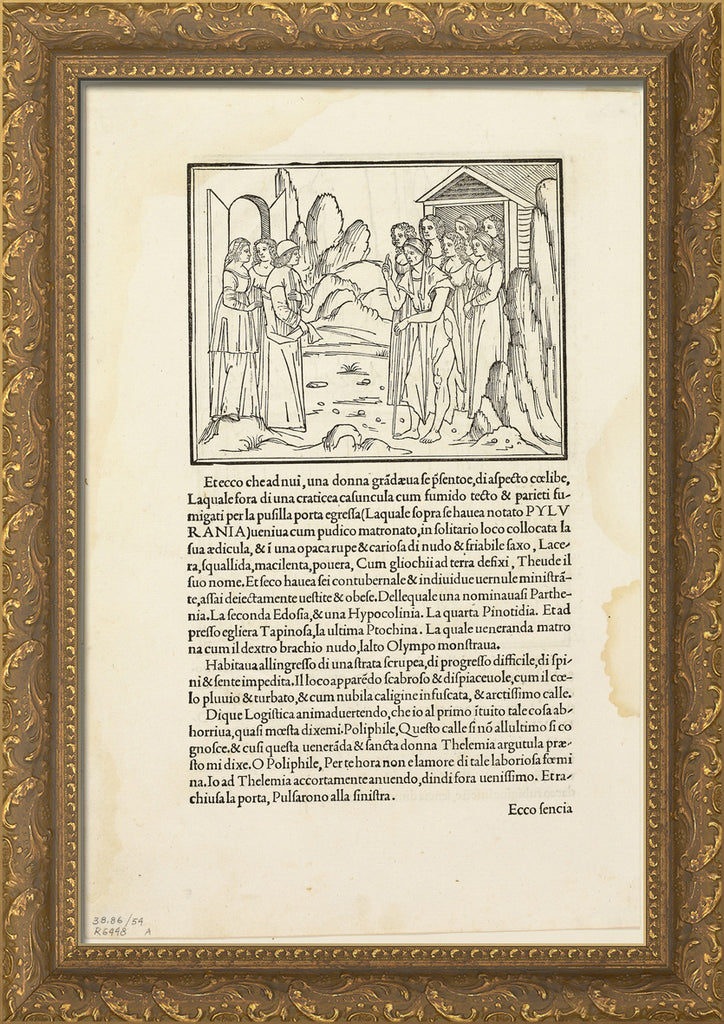 Et ecco che ad nui, una donna grãdæua se p̃sentoe, di aspecto cœlibe,
Laquale fora di una craticea casuncula cum fumido tecto & parieti fu-
migati per la pusilla porta egressa (Laquale sopra se hauea notato PYLV
RANIA) ueniua cum pudico matronato, in solitario loco collocata la
sua ædicula, & ĩ una opaca rupe & cariosa di nudo & friabile saxo, Lace-
ra, squallida, macilenta, pouera, Cum gliochii ad terra defixi, Theude il
suo nome. Et seco hauea sei contubernale & indiuidue uernule ministrã-
te, assai deiectamente uestite & obese. Dellequale una nominauasi Parthe-
nia. La seconda Edosia, & una Hypocolinia. La quarta Pinotidia. Et ad
presso egliera Tapinosa, la ultima Ptochina. La quale ueneranda matro
na cum il dextro brachio nudo, lalto Olympo monstraua.
Habitaua allingresso di una strata scrupea, di progresso difficile, di spi-
ni & sente impedita. Il loco apparẽdo scabroso & dispiaceuole, cum il cœ-
lo pluuio & turbato, & cum nubila caligine infuscata, & arctissimo calle.
Dique Logistica animaduertendo, che io al primo ĩtuito tale cosa ab-
horriua, quasi mœsta dixemi. Poliphile, Questo calle si nõ allultimo si co
gnosce. & cusi questa ueneráda & sancta donna Thelemia argutula præ-
sto mi dixe. O Poliphile, Per te hora non e lamore di tale laboriosa fœmi
na. Io ad Thelemia accortamente anuendo, dindi fora uenissimo. Et ra-
chiusa la porta, Pulsarono alla sinistra.
Ecco sencia
38.86/54
R6448 A